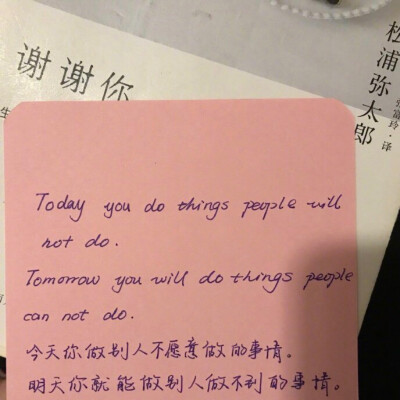 谢谢你
松浦弥太郎
译
Today you do things people will
not do.
Tomorrow you will do things people
can not do.
今天你做别人不愿意做的事情。
明天你就能做别人做不到的事情。